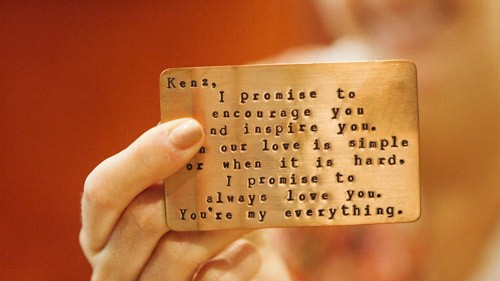 Kenz,
I promise to
encourage you
nd inspire you.
our love is simple
or when it is hard,
I promise to
always love you.
You're my everything.